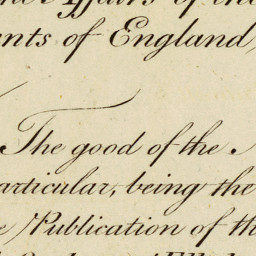 Affairs of the
nts of England,
The good of the
articular, being the
Publication of th